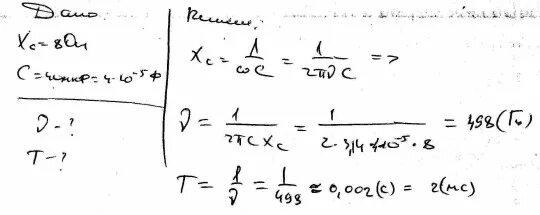 Дано
Xc = 8 Ом
C = 40 мкФ = 4·10⁻⁵ Ф
ν - ?
T - ?
Решение
Xc = 1/ωC = 1/2πνC =>
ν = 1/2πCXc = 1/2·3,14·4·10⁻⁵·8 = 498 (Гц)
T = 1/ν = 1/498 ≈ 0,002 (с) = 2 (мс)